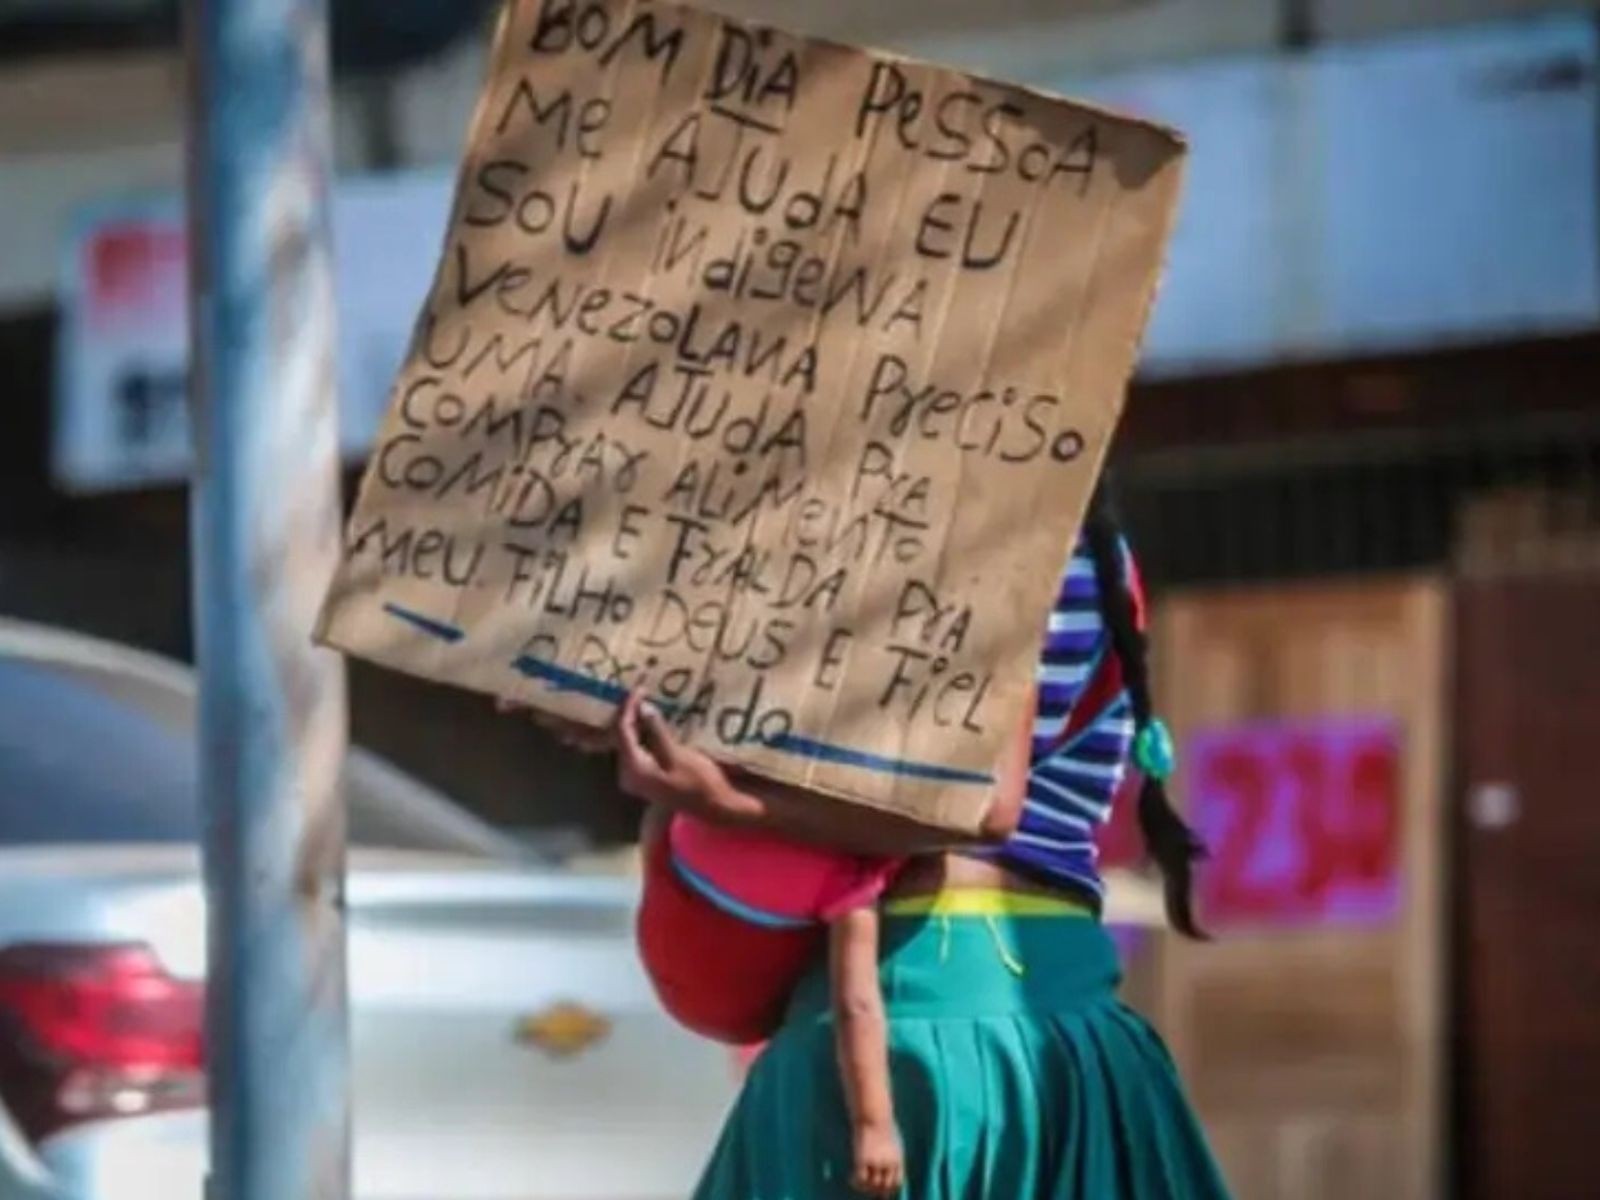 BOM DiA PeSSoA
Me AJUdA EU
SOU iNdigeNA
VeNeZoLANA PreCiSo
UMA AJUdA PrA
COMPrAr ALiMeNTo
COMiDA E FrALDA PrA
MeU FiLHo DEUS E FieL
OBrigAdo
239